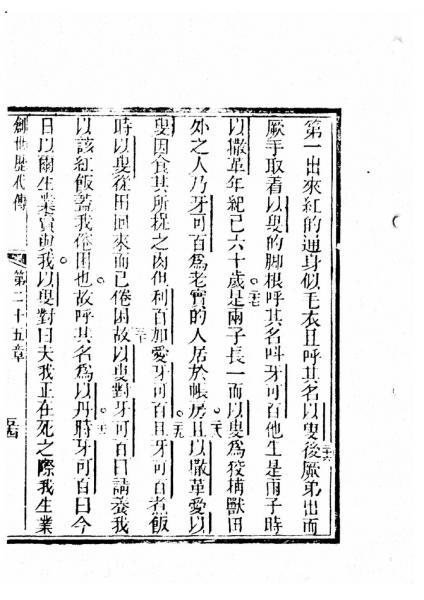 第一出來紅的通身似毛衣且呼其名以叟二六後厥弟出而
厥手取着以叟的脚根呼其名呌牙可百他生是兩子時
以撒革年紀已六十歲二七是兩子長一而以叟為狡捕獸田
外之人乃牙可百為老實的人居於帳房二八且以撒革愛以
叟因食其所之肉但利百加愛牙可百二九且牙可百煮飯
時以叟從田回來而已倦困三十故以叟對牙可百曰請養我
以該紅飯蓋我倦困也故呼其名為以丹時牙可百曰今
日以爾生業賣與我以叟對曰夫我正在死之際我生業
創世歷代傳 第二十五章 五四